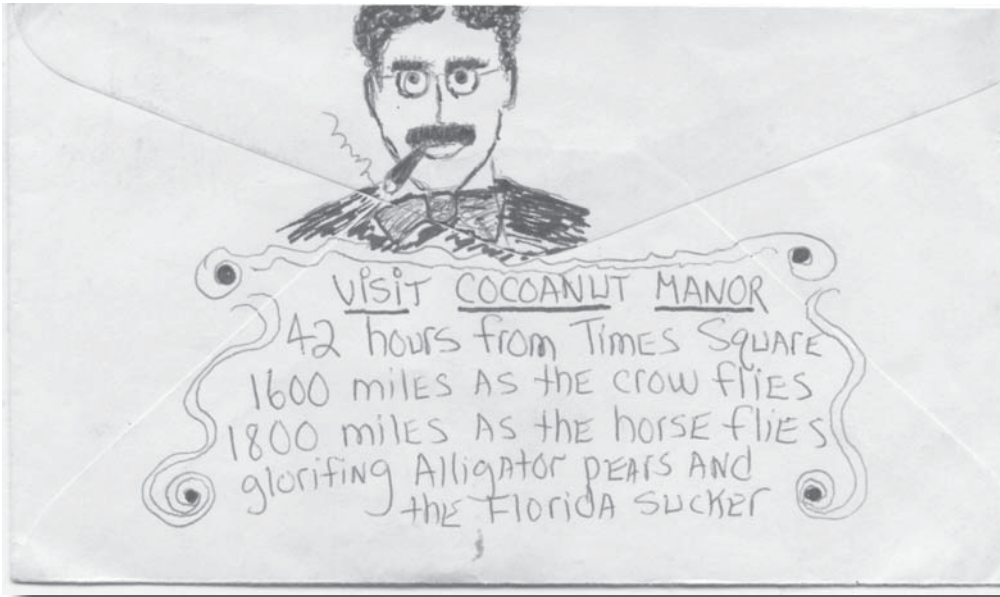 VISIT COCOANUT MANOR
42 hours from Times Square
1600 miles as the crow flies
1800 miles as the horse flies
glorifing Alligator pears and
the Florida sucker